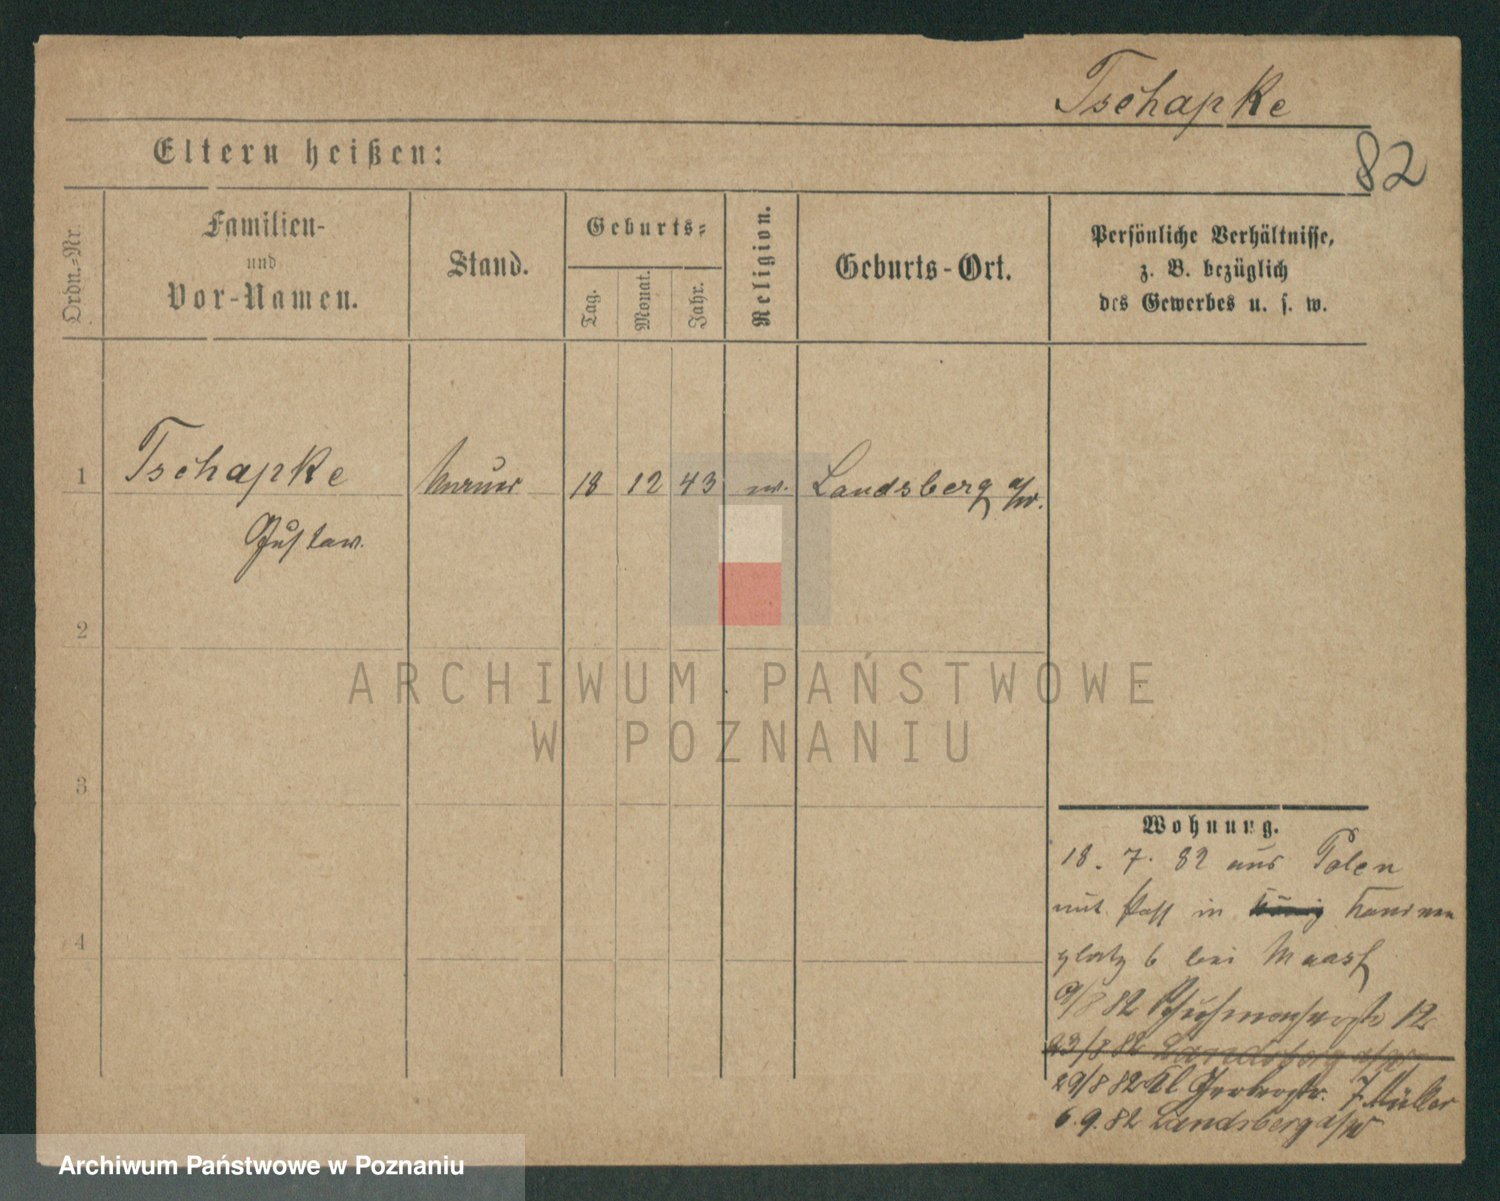 Tschapke
82
Eltern heißen:
Ordn.-Nr.
Familien-
und
Vor-Namen.
Stand.
Geburts-
Tag.
Monat.
Jahr.
Religion.
Geburts-Ort.
Persönliche Verhältnisse,
z. B. bezüglich
des Gewerbes u. s. w.
1 Tschapke 18 12 43 Landsberg a/W.
Gustav.
2
3
4
ARCHIWUM PAŃSTWOWE
W POZNANIU
Wohnung.
18. 7. 82 aus Polen
mit Paß in
platz 6 bei
9/8 82 Schuhmacherstr 12
23/8 82 Landsberg a/W
29/8 82 Kl Gerberstr. 7 Müller
6.9.82 Landsberg a/W
Archiwum Państwowe w Poznaniu